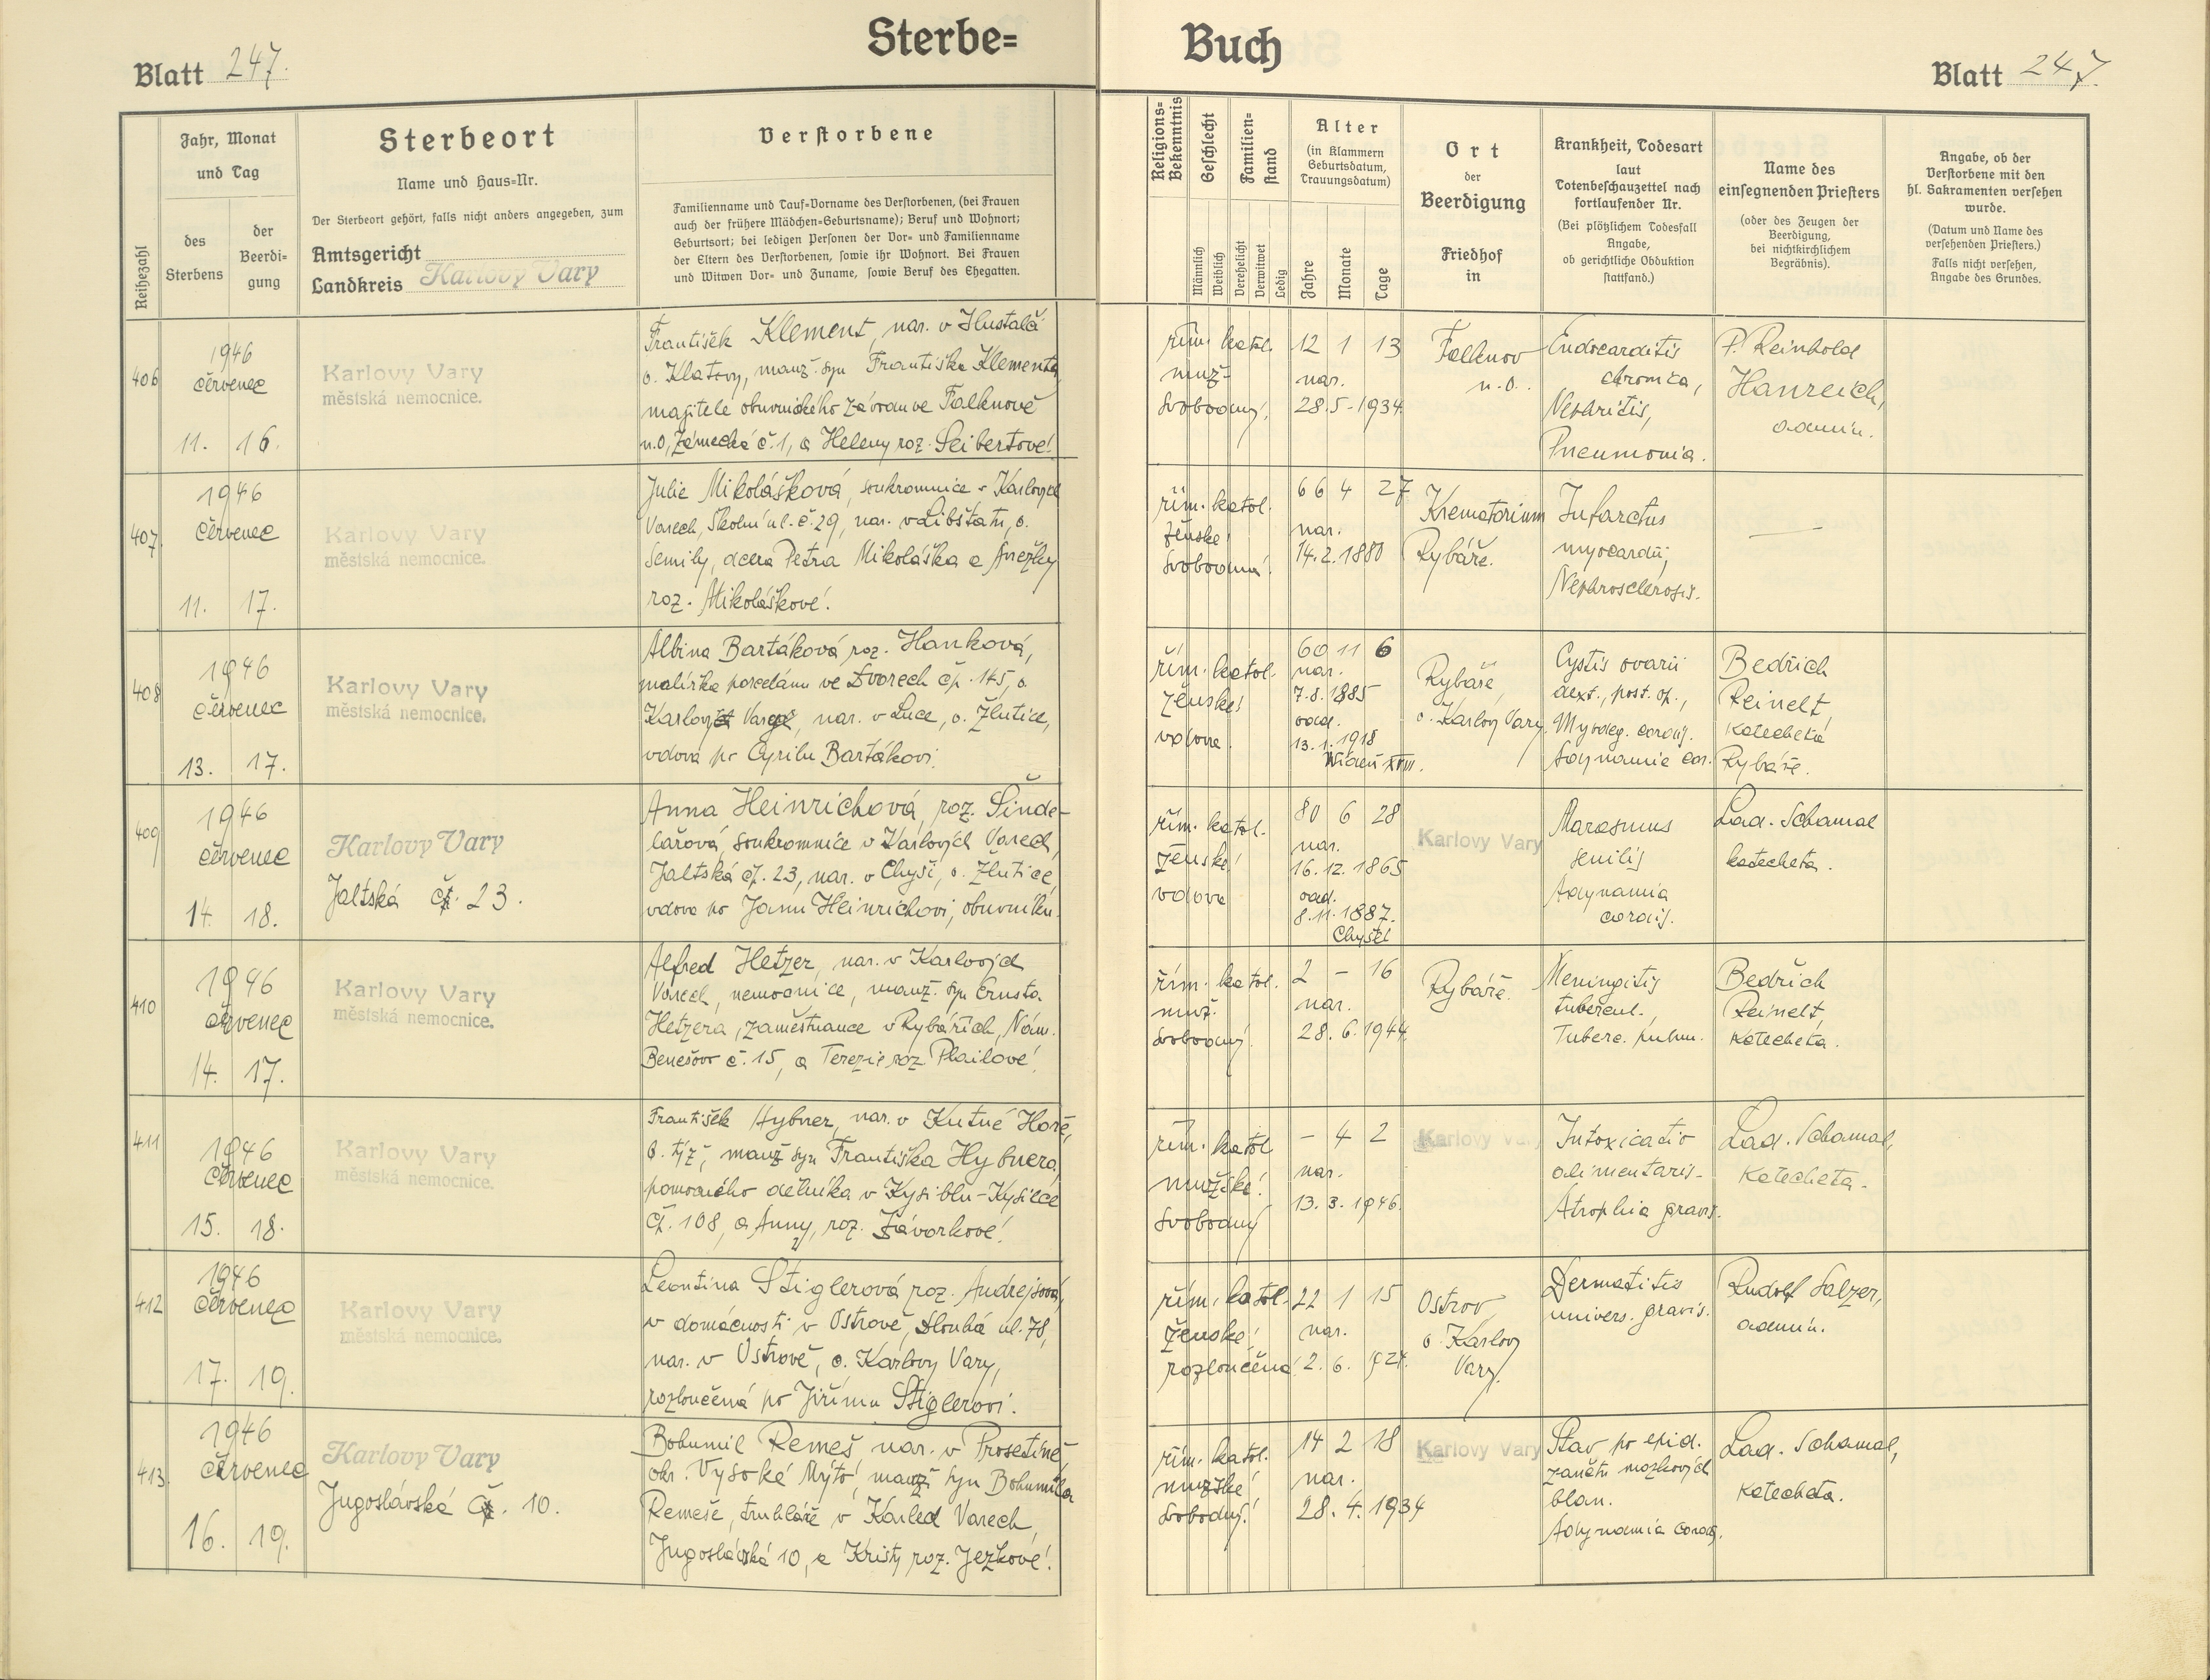 Sterbe=
Blatt 247.
Reihezahl
Jahr, Monat
und Tag
des
Sterbens
der
Beerdi-
gung
Sterbeort
Name und Haus=Nr.
Der Sterbeort gehört, falls nicht anders angegeben, zum
Amtsgericht
Landkreis Karlovy Vary
Verstorbene
Familienname und Tauf=Vorname des Verstorbenen, (bei Frauen
auch der frühere Mädchen=Geburtsname); Beruf und Wohnort;
Geburtsort; bei ledigen Personen der Vor= und Familienname
der Eltern des Verstorbenen, sowie ihr Wohnort. Bei Frauen
und Witwen Vor= und Zuname, sowie Beruf des Ehegatten.
406
1946
červenec
11. 16.
Karlovy Vary
městská nemocnice.
František Klement, nar. v
o. Klatovy, manž. syn Františka Klementa,
majitele obuvnického závodu ve Falknově
n.O, Zámecká č. 1, a Heleny roz. Seibertové.
407
1946
červenec
11. 17.
Karlovy Vary
městská nemocnice.
Julie Mikolášková, soukromnice v Karlových
Varech, Školní ul. č. 29, nar. v Libštatu, o.
Semily, dcera Petra Mikoláška a Anežky
roz. Mikoláškové.
408
1946
červenec
13. 17.
Karlovy Vary
městská nemocnice.
Albina Bartáková roz. Hanková,
malířka porcelánu ve Dvorech čp. 145, o.
Karlovy Vary, nar. v Luce, o. Žlutice,
vdova po Cyrilu Bartákovi.
409
1946
červenec
14. 18.
Karlovy Vary
Jaltská č. 23.
Anna Heinrichová, roz. Šinde-
lářová, soukromnice v Karlových Varech,
Jaltská čp. 23, nar. v Chyši, o. Žlutice,
vdova po Janu Heinrichovi, obuvníku.
410
1946
červenec
14. 17.
Karlovy Vary
městská nemocnice.
Alfred Hetzer, nar. v Karlových
Varech, nemocnice, manž. syn Ernsta
Hetzera, zaměstnance v Rybářích, Nám.
Benešovo č. 15, a Terezie roz. Plailové.
411
1946
červenec
15. 18.
Karlovy Vary
městská nemocnice.
František Hybner, nar. v Kutné Hoře,
o. týž, manž syn Františka Hybnera,
pomocného dělníka v Kysiblu-Kyselce
čp. 108, a Anny, roz. Závorkové.
412
1946
červenec
17. 19.
Karlovy Vary
městská nemocnice.
Leontina Stiglerová roz. Andrejsová,
v domácnosti v Ostrově, Dlouhá ul. 78,
nar. v Ostrově, o. Karlovy Vary,
rozloučená po Jiřímu Stiglerovi.
413.
1946
červenec
16. 19.
Karlovy Vary
Jugoslávská č. 10.
Bohumil Remeš nar. v Prosetíně,
okr. Vysoké Mýto, manž syn Bohumila
Remeše, truhláře v Karled Varech,
Jugoslávská 10, a Kristy roz. Ježkové.
Buch
Blatt 247.
Religions=
Bekenntnis
Geschlecht
Familien=
stand
Männlich
Weiblich
Verehelicht
Verwitwet
Ledig
Alter
(in Klammern
Geburtsdatum,
Trauungsdatum)
Jahre
Monate
Tage
Ort
der
Beerdigung
Friedhof
in
Krankheit, Todesart
laut
Totenbeschauzettel nach
fortlaufender Nr.
(Bei plötzlichem Todesfall
Angabe,
ob gerichtliche Obduktion
stattfand.)
Name des
einsegnenden Priesters
(oder des Zeugen der
Beerdigung,
bei nichtkirchlichem
Begräbnis).
Angabe, ob der
Verstorbene mit den
hl. Sakramenten versehen
wurde.
(Datum und Name des
versehenden Priesters.)
Falls nicht versehen,
Angabe des Grundes.
řím. katol.
muž.
svobodný.
12 1 13
nar.
28.5-1934
Falknov
n.O.
Endocarditis
chronica,
Nephritis,
Pneumonia.
P. Reinhold
Hanreich,
admin.
řím. katol.
ženské
svobodná.
66 4 27
nar.
14.2.1880
Krematorium
Rybáře.
Infarctus
myocardii,
Nephrosclerosis.
—
řím. katol.
ženské
vdova.
60 11 6
nar.
7.8.1885
odd.
13.1.1918
Wídeň XVIII.
Rybáře,
o. Karlovy Vary.
Cystis ovarii
dext., post. op.,
Myodeg. cordis.
Adynamie cor.
Bedřich
Reinelt
katecheta
Rybáře.
řím. katol.
ženské
vdova
80 6 28
nar.
16.12.1865
odd.
8.11.1887.
Chyšei
Karlovy Vary
Marasmus
senilis
Adynamia
cordis.
Lad. Schamal
katecheta.
řím. katol.
muž.
svobodný.
2 – 16
nar.
28.6.1944.
Rybáře.
Meningitis
tubercul.,
Tuberc. pulm.
Bedřich
Reinelt,
katecheta.
řím. katol
mužské
svobodný
– 4 2
nar.
13.3.1946.
Karlovy Vary
Intoxicatio
alimentaris.
Atrophia gravis.
Lad. Schamal,
katecheta.
řím. katol.
ženské
rozloučená
22 1 15
nar.
2.6. 1924.
Ostrov,
o. Karlovy
Vary.
Dermatitis
univers. gravis.
Rudolf Salzer,
admin.
řím. katol.
mužské
svobodný.
14 2 18
nar.
28.4.1934
Karlovy Vary
Stav po epid.
zánětu mozkových
blan.
Adynamia cordis.
Lad. Schamal,
katecheta.